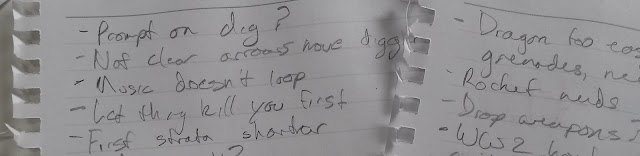 - Prompt on dig?
- Not clear arrows move digg
- Music doesn't loop
- Let thng kill you first
- First strata shorter
?
- Dragon too eas
grenades, ne
- Rocket needs
- Drop weapons?
- WWS 2